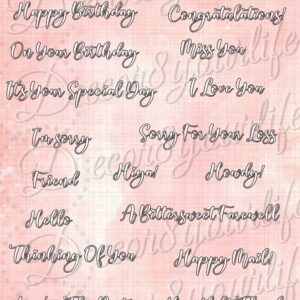 Happy Birthday
Congratulations!
On Your Birthday
Miss You
It's Your Special Day
I Love You
I'm sorry
Sorry For Your Loss
Friend
Hiya!
Howdy!
Hello
A Bittersweet Farewell
Thinking Of You
Happy Mail!
Decor8yourlife